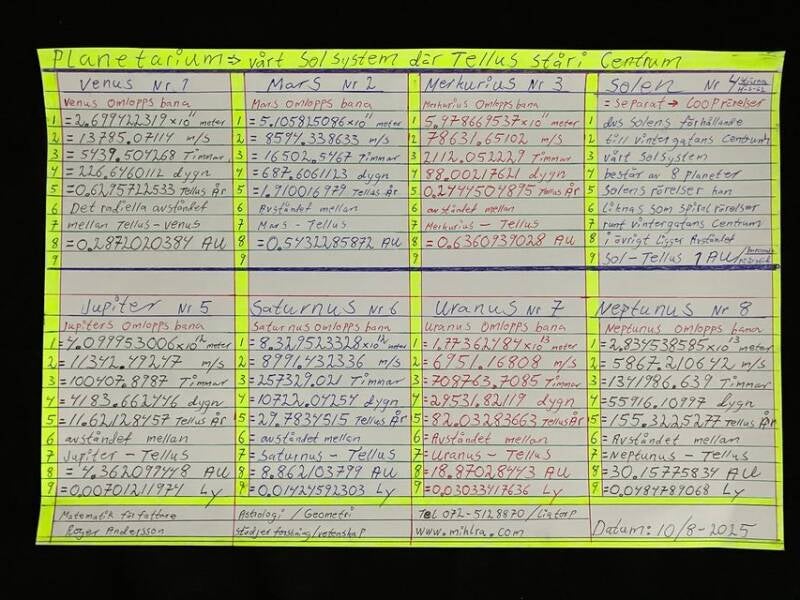 Planetarium ⇒ vårt Solsystem där Tellus står i Centrum
Venus Nr 1
Venus omlopps bana
1 = 2.699422319 × 10¹¹ meter
2 = 13785.07114 m/s
3 = 5439.504268 Timmar
4 = 226.6460112 dygn
5 = 0.6295722533 Tellus År
6 Det radiella avståndet
7 mellan Tellus - venus
8 = 0.2872020384 AU
9
Mars Nr 2
Mars Omlopps bana
= 5.105825086 × 10¹¹ meter
= 8594.338633 m/s
= 16502.5467 Timmar
= 687.6061123 dygn
= 1.910016979 Tellus År
Avståndet mellan
Mars - Tellus
= 0.5432285872 AU
Merkurius Nr 3
Merkurius Omlopps bana
1 5.978669537 × 10¹¹ meter
2 = 78631.65102 m/s
3 2112.052229 Timmar
4 = 88.00217621 dygn
5 0.2444504895 Tellus År
6 avståndet mellan
7 Merkurius - Tellus
8 = 0.6360939028 AU
9
Solen Nr 4
= Separat → Loop rörelser
1 dvs Solens förhållande
2 till vintergatans Centrum
3 vårt Solsystem
4 består av 8 planeter
5 Solens rörelser kan
6 liknas som spiral rörelser
7 runt vintergatans Centrum
8 i övrigt ligger Avståndet
9 Sol - Tellus 1 AU
Jupiter Nr 5
Jupiters Omlopps bana
1 = 4.099953006 × 10¹² meter
2 = 11342.49247 m/s
3 = 100407.8987 Timmar
4 = 4183.662446 dygn
5 = 11.62128457 Tellus År
6 avståndet mellan
7 Jupiter - Tellus
8 = 4.362099448 AU
9 = 0.00701211974 Ly
Saturnus Nr 6
Saturnus Omlopps bana
1 = 8.329523328 × 10¹² meter
2 = 8991.432336 m/s
3 = 257329.021 Timmar
4 = 10722.04254 dygn
5 = 29.7834515 Tellus År
6 = avståndet mellan
7 = Saturnus - Tellus
8 = 8.862103799 AU
9 = 0.01424592303 Ly
Uranus Nr 7
Uranus Omlopps bana
1 = 1.77362484 × 10¹³ meter
2 = 6951.16808 m/s
3 = 708763.7085 Timmar
4 = 29531.82119 dygn
5 = 82.03283663 Tellus År
6 = Avståndet mellan
7 = Uranus - Tellus
8 = 18.87028443 AU
9 = 0.03033417636 Ly
Neptunus Nr 8
Neptunus omlopps bana
1 = 2.834538585 × 10¹³ meter
2 = 5867.210642 m/s
3 = 1341986.639 Timmar
4 = 55916.10997 dygn
5 = 155.3225277 Tellus År
6 = Avståndet mellan
7 = Neptunus - Tellus
8 = 30.15775834 AU
9 = 0.0484789068 Ly
Matematik författare
Roger Andersson
Astrologi / Geometri
Stödjer forskning/vetenskap
Tel 072-5128870 / Liatorp
www.mihlra.com
Datum: 10/8-2025